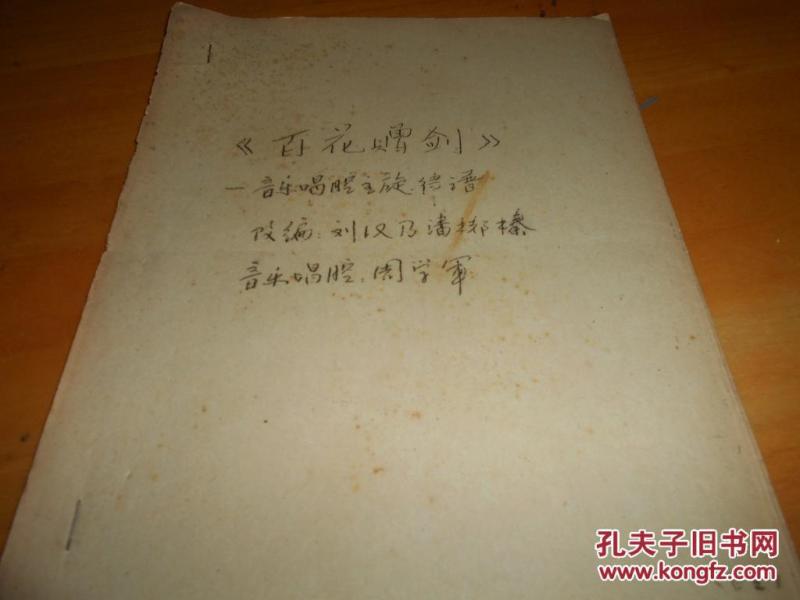 《百花赠剑》
—音乐唱腔主旋律谱
改编:刘汉乃潘郁榛
音乐唱腔:周学军
孔夫子旧书网
www.kongfz.com